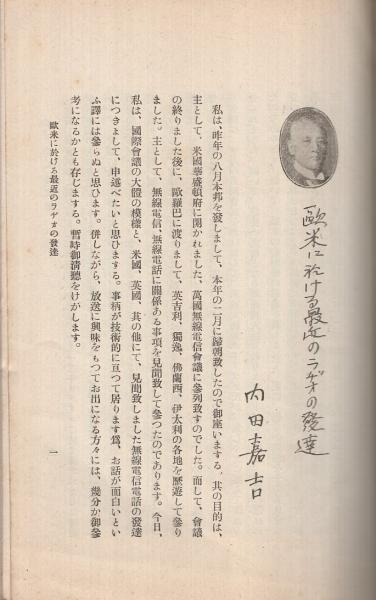 歐米に於ける最近のラヂオの發達
內田嘉吉
私は、昨年の八月本邦を發しまして、本年の二月に歸朝致したので御座いまする。其の目的は、
主として、米國華盛頓府に開かれました、萬國無線電信會議に參列致すのでした。而して、會議
の終りました後に、歐羅巴に渡りまして、英吉利、獨逸、佛蘭西、伊太利の各地を歷遊して參り
ました。主として、無線電信、無線電話に關係ある事項を見聞致して參つたのであります。今日、
私は、國際會議の大體の模樣と、米國、英國、其の他にて、見聞致しました無線電信電話の發達
につきまして、申述べたいと思ひまする。事柄が技術的に亘つて居ります爲、お話が面白いとい
ふ譯には參らぬと思ひます。併しながら、放送に興味をもつてお出になる方々には、幾分か御參
考になるかとも存じまする。暫時御淸聽をけがします。
歐米に於ける最近のラヂオの發達
一